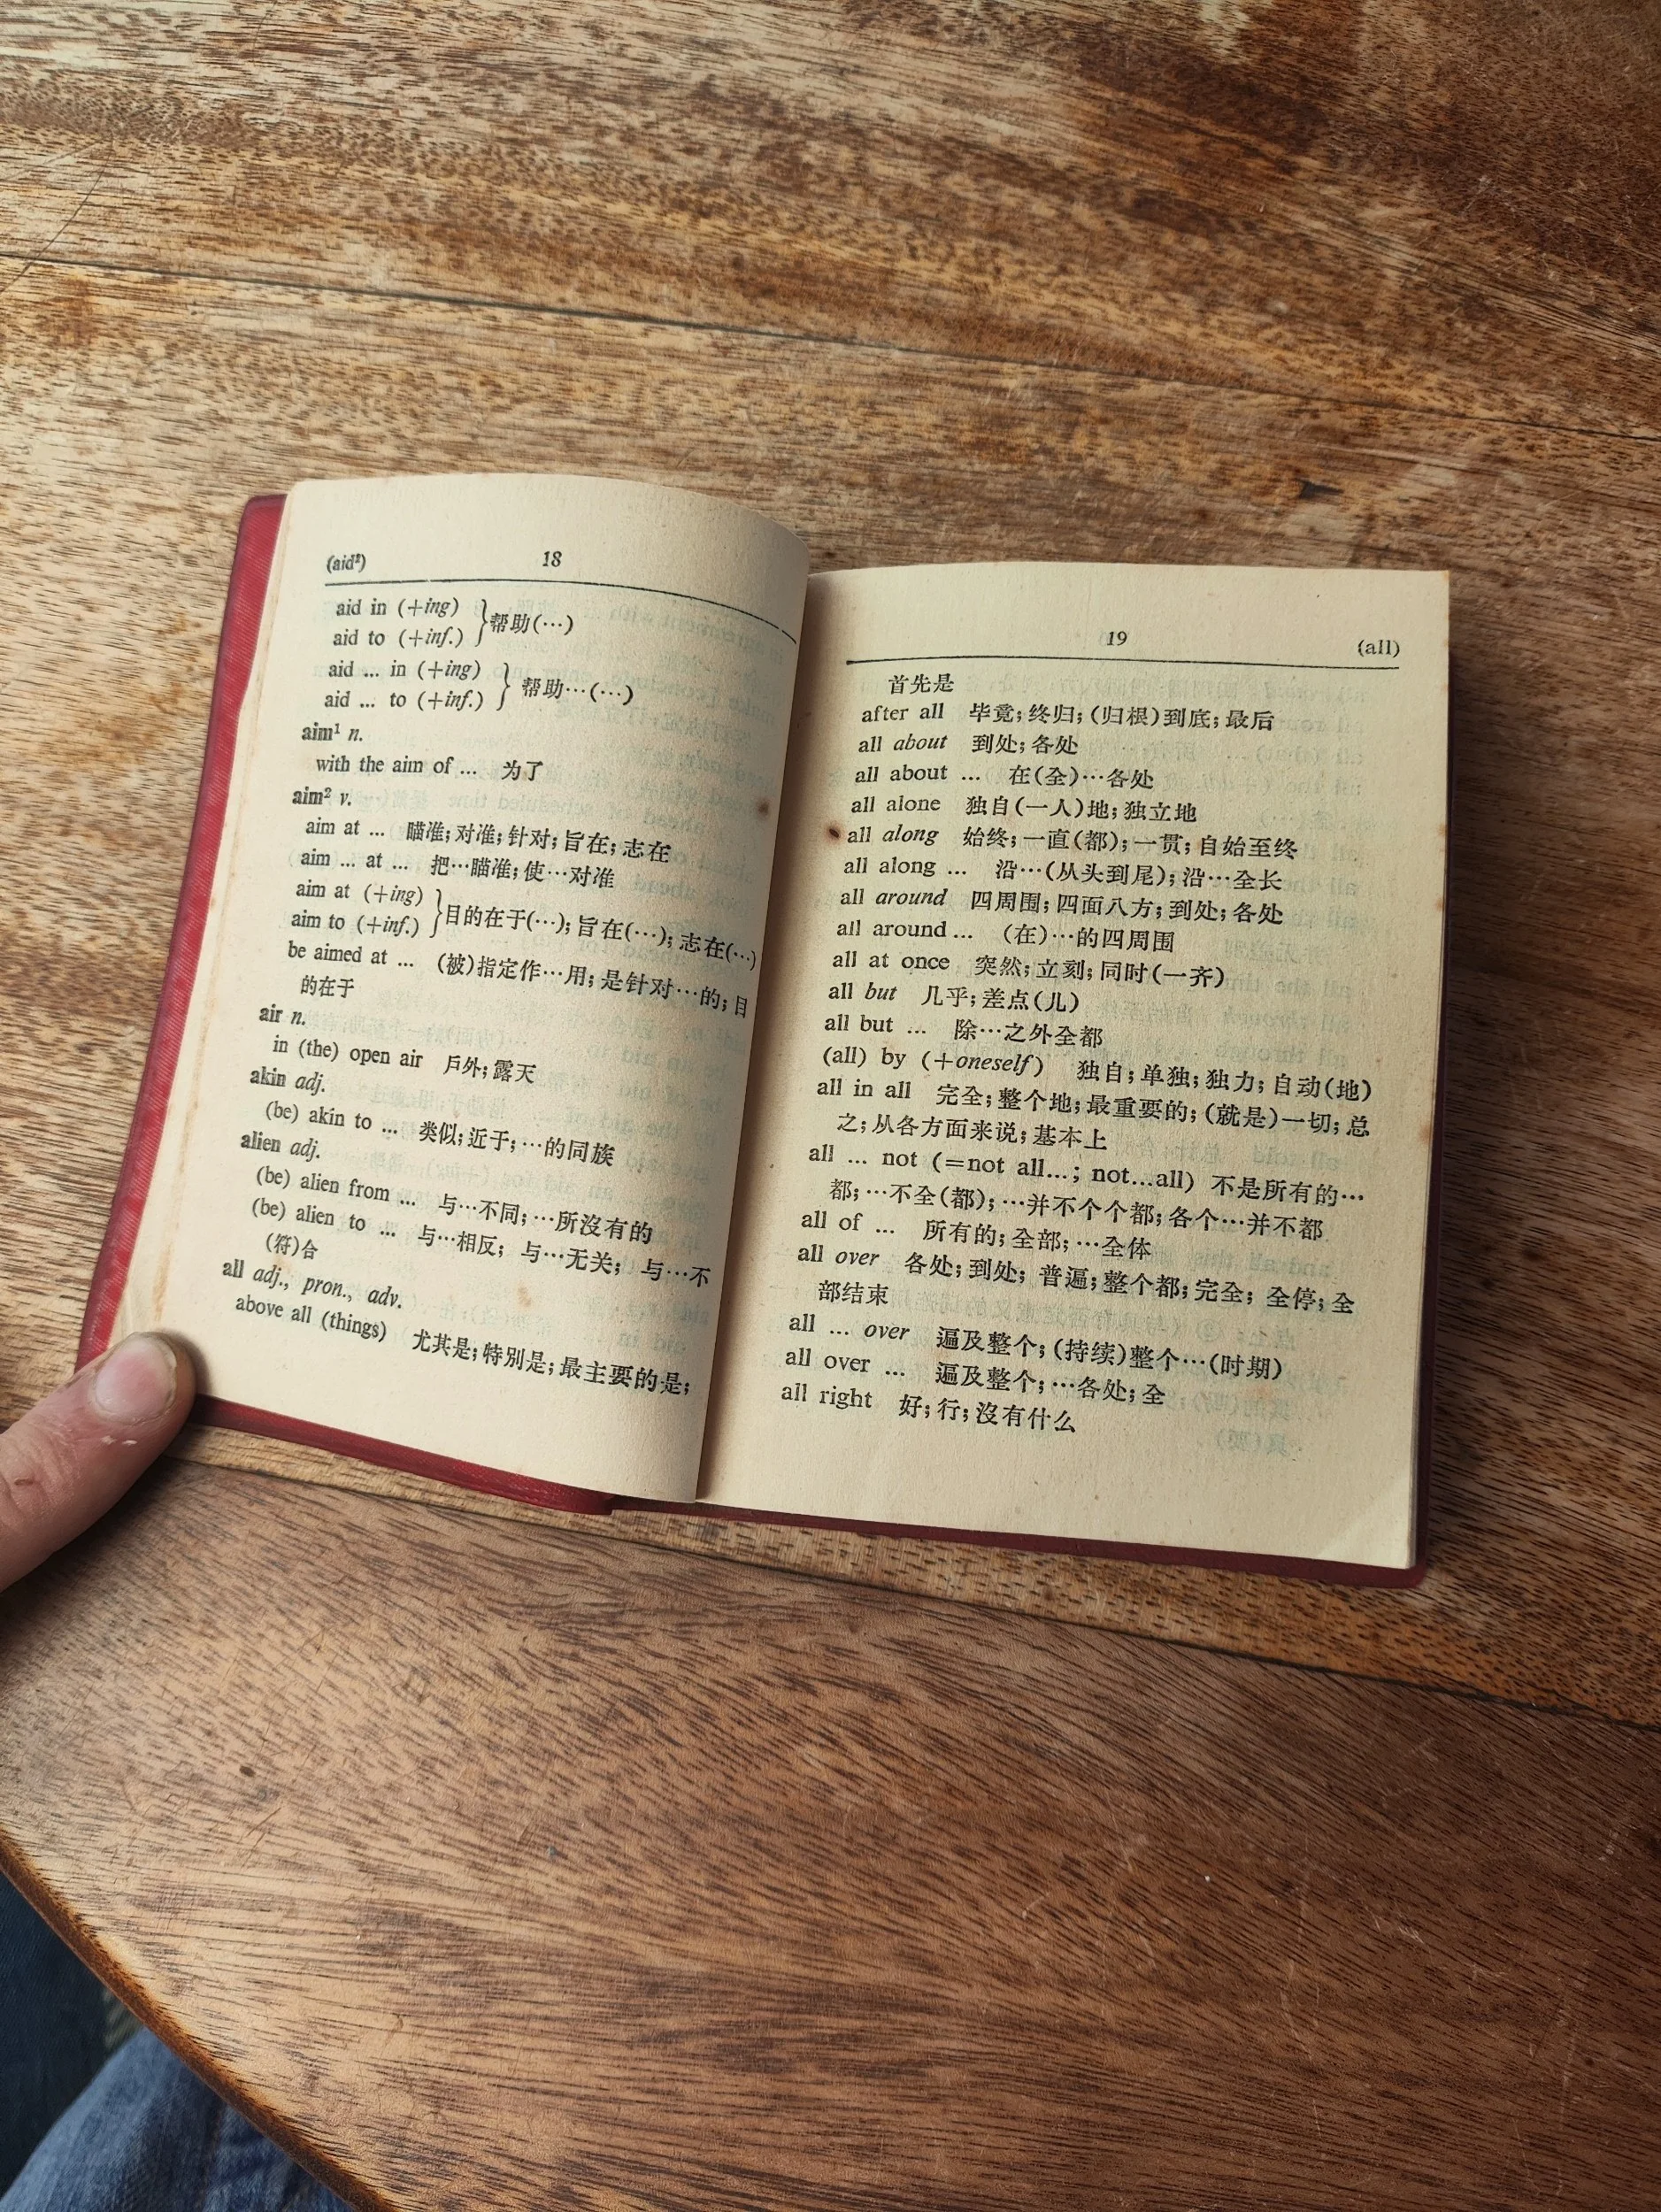 (aid²) 18
aid in (+ing) }帮助(…)
aid to (+inf.)
aid ... in (+ing) } 帮助…(…)
aid ... to (+inf.)
aim¹ n.
with the aim of ... 为了
aim² v.
aim at ... 瞄准;对准;针对;旨在;志在
aim ... at ... 把…瞄准;使…对准
aim at (+ing) }目的在于(…);旨在(…);志在(…)
aim to (+inf.)
be aimed at ... (被)指定作…用;是针对…的;目
的在于
air n.
in (the) open air 戶外;露天
akin adj.
(be) akin to ... 类似;近于;…的同族
alien adj.
(be) alien from ... 与…不同;…所沒有的
(be) alien to ... 与…相反; 与…无关; 与…不
(符)合
all adj., pron., adv.
above all (things) 尤其是;特别是;最主要的是;
19 (all)
首先是
after all 毕竟;终归;(归根)到底;最后
all about 到处;各处
all about ... 在(全)…各处
all alone 独自(一人)地;独立地
all along 始终;一直(都);一贯;自始至终
all along ... 沿…(从头到尾);沿…全长
all around 四周围;四面八方;到处;各处
all around ... (在)…的四周围
all at once 突然;立刻;同时(一齐)
all but 几乎;差点(儿)
all but ... 除…之外全都
(all) by (+oneself) 独自;单独;独力;自动(地)
all in all 完全;整个地;最重要的;(就是)一切;总
之;从各方面来说;基本上
all ... not (=not all...; not...all) 不是所有的…
都;…不全(都);…并不个个都;各个…并不都
all of ... 所有的;全部;…全体
all over 各处;到处; 普遍;整个都;完全; 全停;全
部结束
all ... over 遍及整个;(持续)整个…(时期)
all over ... 遍及整个;…各处;全
all right 好;行;沒有什么